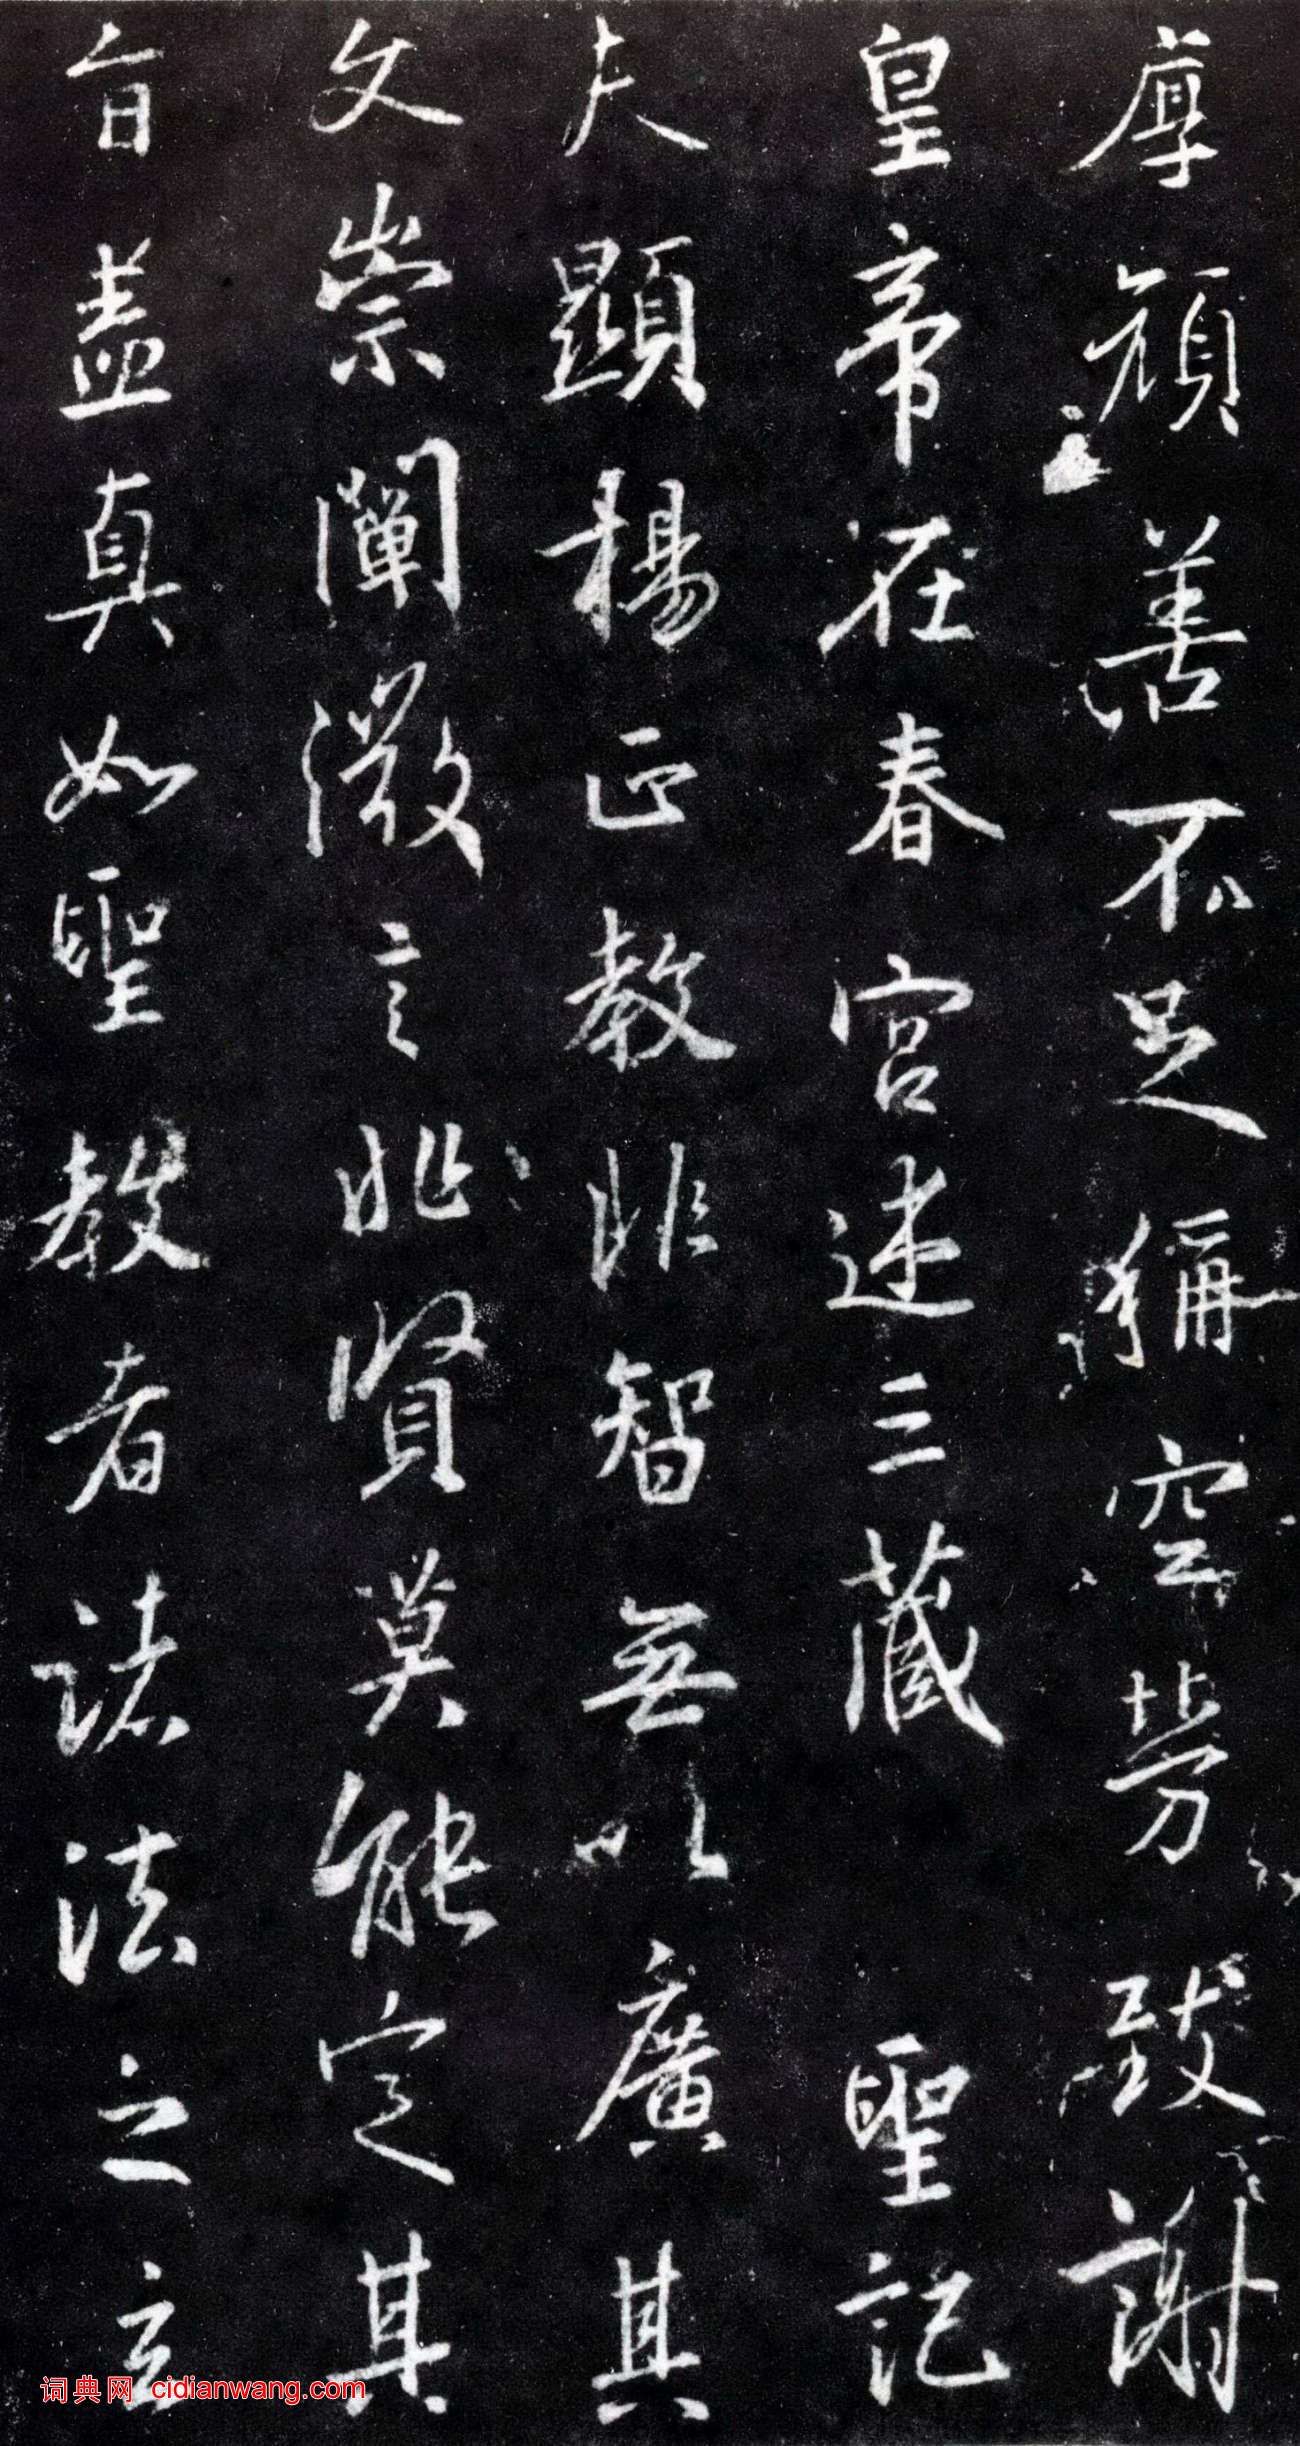 厚顔善不足稱空勞致謝
皇帝在春宮述三藏聖記
夫顯揚正教非智無以廣其
文崇闡微言非賢莫能定其
旨盖真如聖教者諸法之玄
词典网 cidianwang.com